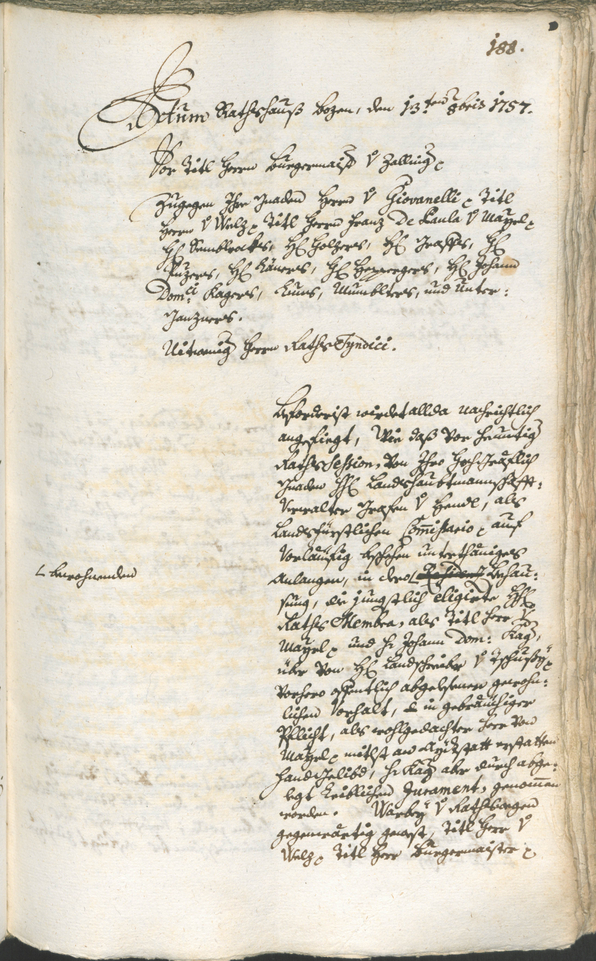 188.
Actum Rathshauß Bozen, den 13.ten 8bris 1757.
Vor Titl Herrn Burgermaister V Zalling
Zugegen Ihro Gnaden Herrn V Giovanelli Titl
Herrn V Welz, Titl Herrn Franz De Paula V Mayrl
H: Holzers, H: Graffs, H:
H: H: H: Johann
Dom: Kagers, Kuns, Mumblters, und Unter:
ganzners.
Herrn Raths Syndici.
Beforderist wirdet allda nachrichtlich
angefüegt, Wie daß vor heuntig
Raths Session, von Ihro Hochgräflich
Gnaden H: Landshaubtmannschaffts:
Verwalter Grafen V Hendl, als
Landsfürstlichen Commissario auf
Vorläuffig beschehen unterthäniges
Anlangen, in dero Behau:
bewohnenden
sung, die jüngstlich eligirte H:
Raths Membra, als Titl Herr V
Mayrl und H: Johann Dom: Kag,
über von H: Landschreiber V
vorhero offentlich abgelesenen gewohn:
lichen Vorhalt, in gebräuchiger
Pflicht, als wohlgedachter Herr von
Mayrl mitlst an Aydtstatt erstatten
Handgelibd, H: Kag aber durch abge:
legt Leiblichen Jurament, genommen
worden. Warbey V Rathswegen
gegenwärtig gewest, Titl Herr V
Welz, Titl Herr Burgermaister